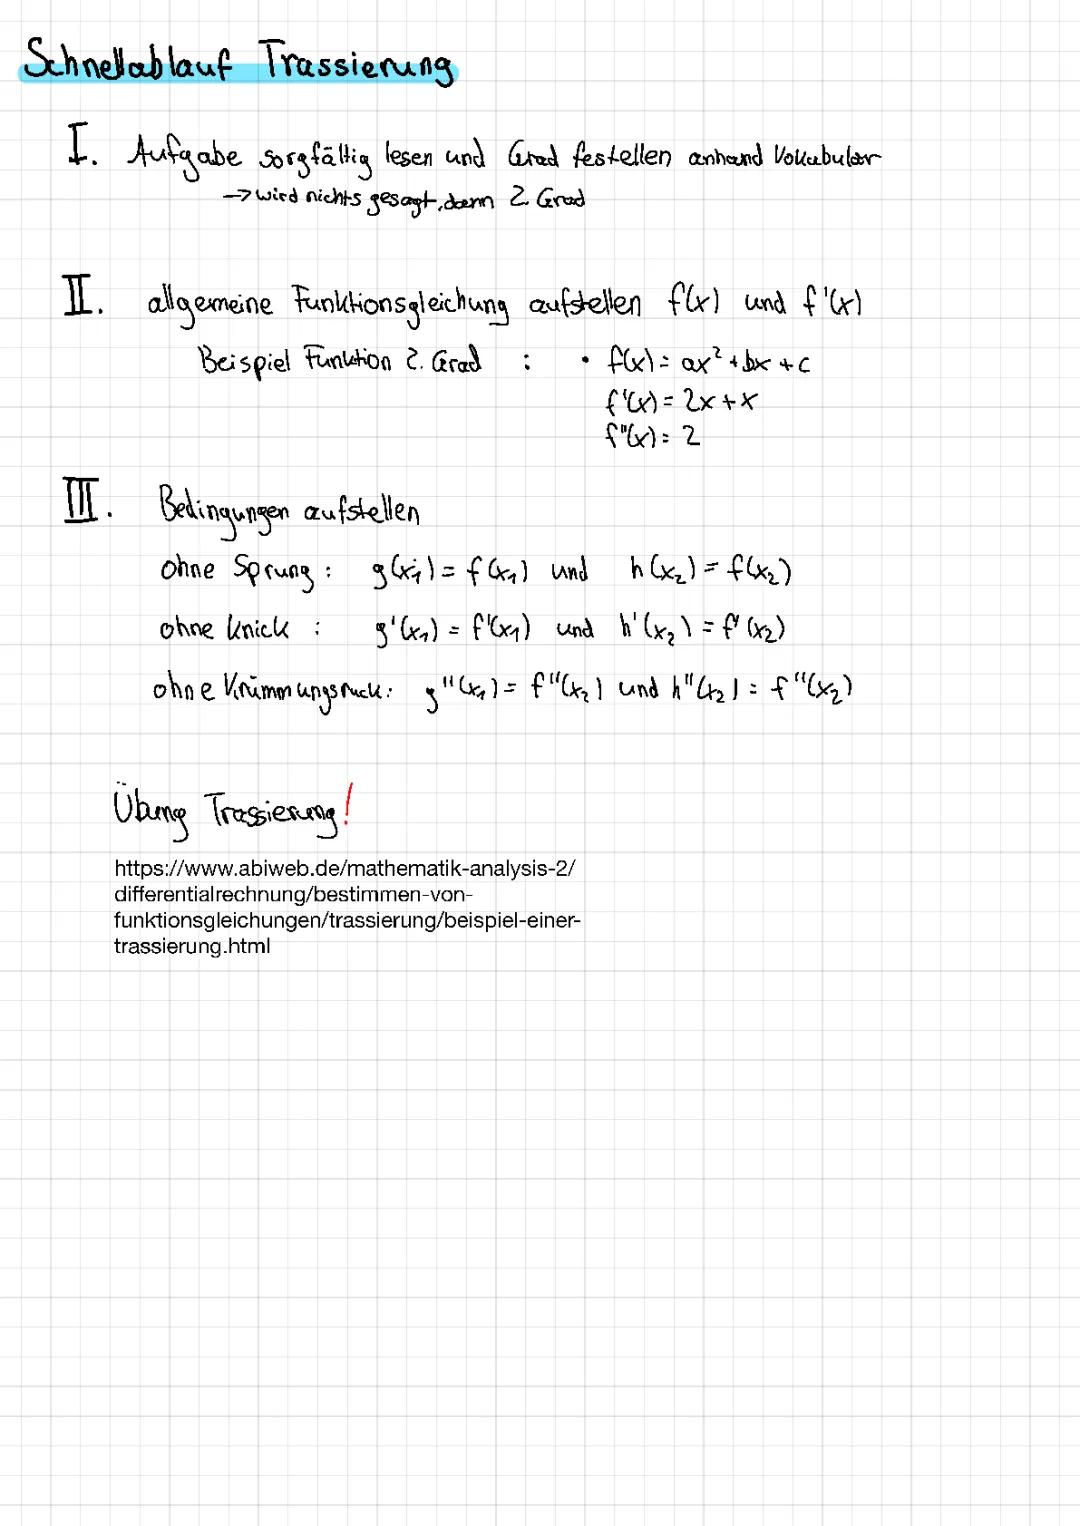 Schnellablauf Trassierung
I. Aufgabe sorgfältig lesen und Grad festellen anhand Vokabular
→ wird nichts gesagt, dann 2. Grad
II. allgemeine Funktionsgleichung aufstellen f(x) und f'(x)
Beispiel Funktion 2. Grad : • f(x) = ax² + bx + c
f'(x) = 2x + x
f"(x) = 2
III. Bedingungen aufstellen
ohne Sprung : g(x₁) = f(x₁) und h(x₂) = f(x₂)
ohne Knick : g'(x₁) = f'(x₁) und h'(x₂) = f'(x₂)
ohne Krümmungsruck: g"(x₁) = f"(x₂) und h"(x₂) = f"(x₂)
Übung Trassierung!
https://www.abiweb.de/mathematik-analysis-2/
differentialrechnung/bestimmen-von-
funktionsgleichungen/trassierung/beispiel-einer-
trassierung.html